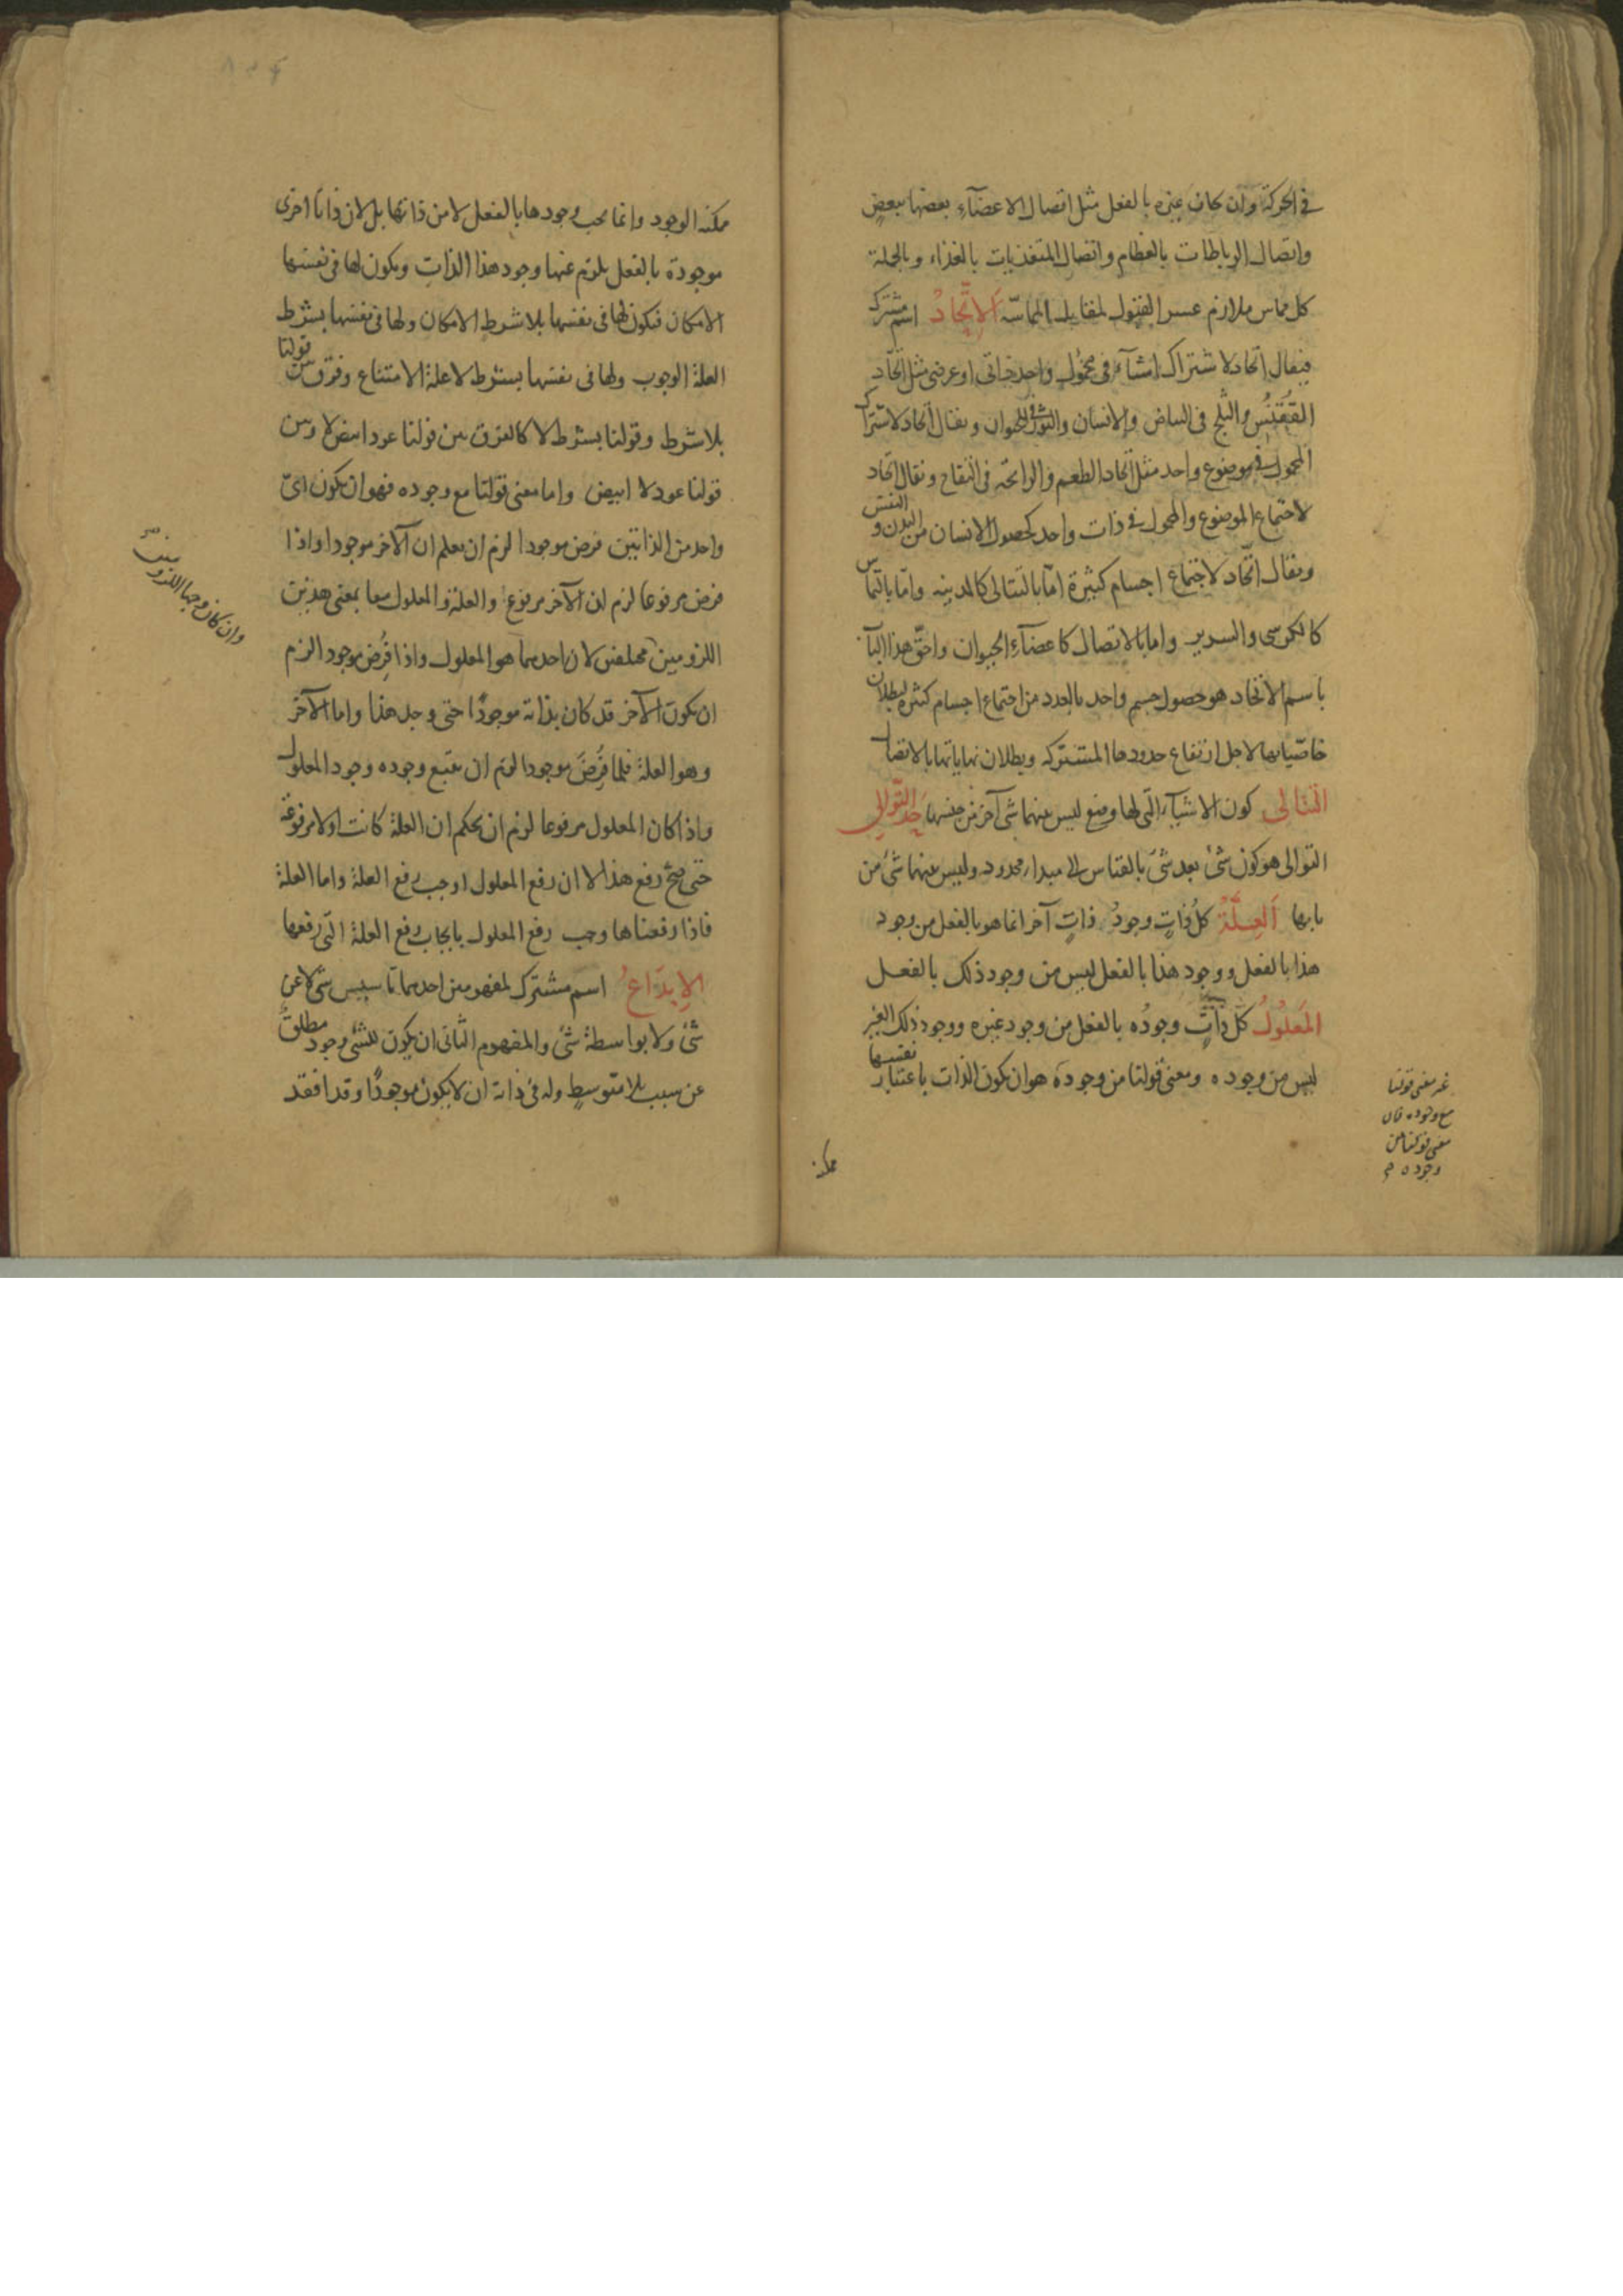 في الحركة وان كان غيره بالفعل مثل اتصال الاعضآء بعضها ببعض
واتصال الرباطات بالعظام واتصال المتغذيات بالغذاء وبالجملة
كل مماس ملازم عسر القبول لمقابل المماسّة الاِتّحادُ اسم مشترك
فيقال اتحاد لاشتراك اشيآء في محمول واحد ذاتي او عرضي مثل اتحاد
القُقنُس والثلج في البياض والانسان والثور في الحيوان ويقال اتحاد لاشتراك
المحمول في موضوع واحد مثل اتحاد الطعم والرائحة في التفاح ويقال اتحاد
لاجتماع الموضوع والمحمول في ذات واحد كحصول الانسان من البدن و النفس
ويقال اتّحاد لاجتماع اجسام كثيرة امّا بالتتالي كالمدينه وامّا بالتماس
كالكرسي والسرير واما بالاتصال كاعضآء الحيوان واحقّ هذا الباب
باسم الاتحاد هو حصول جسم واحد بالعدد من اجتماع اجسام كثيره لبطلان
خاصّياتها لاجل ارتفاع حدودها المشتركه وبطلان نهاياتها بالاتصال
التتالي كون الاشيآء التّي لها وضع ليس بينهما شى آخر من جنسها حد التّوالي
التوالي هو كون شئ بعد شئ بالقياس الى مبداء محدود وليس بينهما شئ من
بابها اَلعِلَّةُ كلُ ذاتٍ وجودُ ذاتٍ آخر انما هو بالفعل من وجود
هذا بالفعل ووجود هذا بالفعل ليس من وجود ذلك بالفعل
المَعلُولُ كل ذاتٍ وجودُه بالفعل من وجود غيره ووجود ذلك الغير
ليس من وجوده ومعنى قولنا من وجوده هو ان يكون الذات باعتبار نفسها
غير معنى قولنا
مع وجوده فان
معنى قولنا من
وجوده
ممكنه
ممكنه الوجود وانما يجب وجودها بالفعل لا من ذاتها بل لان ذاتا اخرى
موجودة بالفعل يلزم عنها وجود هذا الذات ويكون لها في نفسها
الامكان فيكون لها في نفسها بلا شرط الامكان ولها في نفسها بشرط
العلة الوجوب ولها في نفسها بشرط لا علة الامتناع وفرق بين قولنا
بلا شرط وقولنا بشرط لا كالفرق بين قولنا عود ابيض لا وبين
قولنا عود لا ابيض واما معنى قولنا مع وجوده فهو ان يكون اىّ
واحد من الذاتين فرض موجودا لزم ان يعلم ان الآخر موجودا واذا
فرض مرفوعا لزم ان الآخر مرفوع والعلة والمعلول معا بمعنى هذين
اللزومين مختلفين لان احدهما هو المعلول واذا فُرِض موجودا لزم
ان يكون الآخر قد كان بذاته موجودًا حتى وجد هذا واما الآخر
وهو العلة فلما فُرِضَ موجودا لزم ان يتبع وجوده وجود المعلول
واذا كان المعلول مرفوعا لزم ان يحكم ان العلة كانت اولا مرفوعة
حتى صح رفع هذا لا ان رفع المعلول اوجب رفع العلة واما العلة
فاذا رفعناها وجب رفع المعلول بايجاب رفع العلة التّي رفعها
الاِبدَاعُ اسم مشترك لمفهومين احدهما تاسيس شى لا عن
شئ ولا بواسطة شئ والمفهوم الثانى ان يكون للشئ وجود مطلق
عن سبب بلا متوسطٍ وله في ذاته ان لا يكون موجودًا وقد افقد
وان كان وجها اللزومين